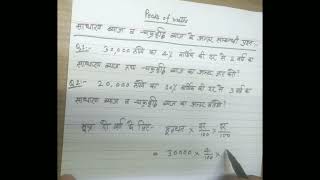 Peaks of maths
साधारण ब्याज व चक्रवृद्धि ब्याज के अन्तर सम्बन्धी प्रश्न:-
Q1:- 30,000 रूपये का 4% वार्षिक की दर से 2 वर्ष का
साधारण ब्याज तथा चक्रवृद्धि ब्याज का अन्तर ज्ञात कीजिये?
Q2:- 20,000 रूपये का 10% वार्षिक की दर से 3 वर्ष का
साधारण ब्याज व चक्रवृद्धि ब्याज का अन्तर
सूत्र दो वर्ष के लिए:- मूलधन × दर/100 × दर/100
= 30000 × 4/100 ×